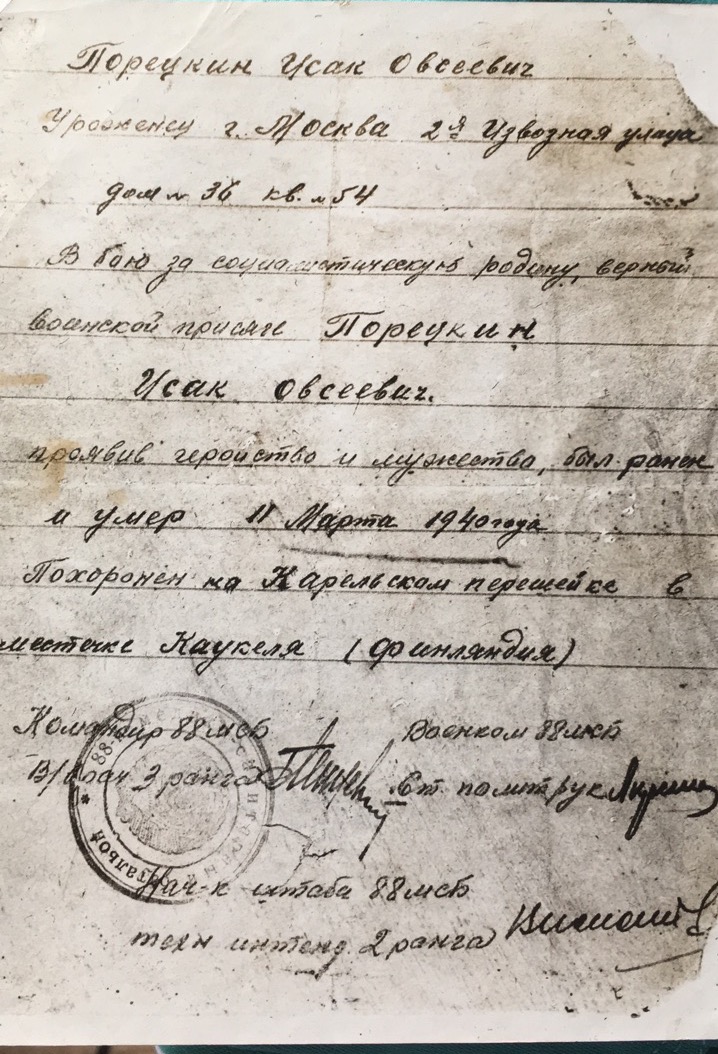 Порецкин Исак Овсеевич
Уроженец г. Москва 2я Извозная улица
дом № 36 кв. № 54
В бою за социалистическую родину, верный
воинской присяге Порецкин
Исак Овсеевич.
проявив геройство и мужества, был ранен
и умер 11 Марта 1940 года
Похоронен на Карельском перешейке в
местечке Каукеля (Финляндия)
Командир 88 мсб Военком 88 мсб
В/врач 3 ранга Ст. политрук
Нач-к штаба 88 мсб
техн интенд. 2 ранга